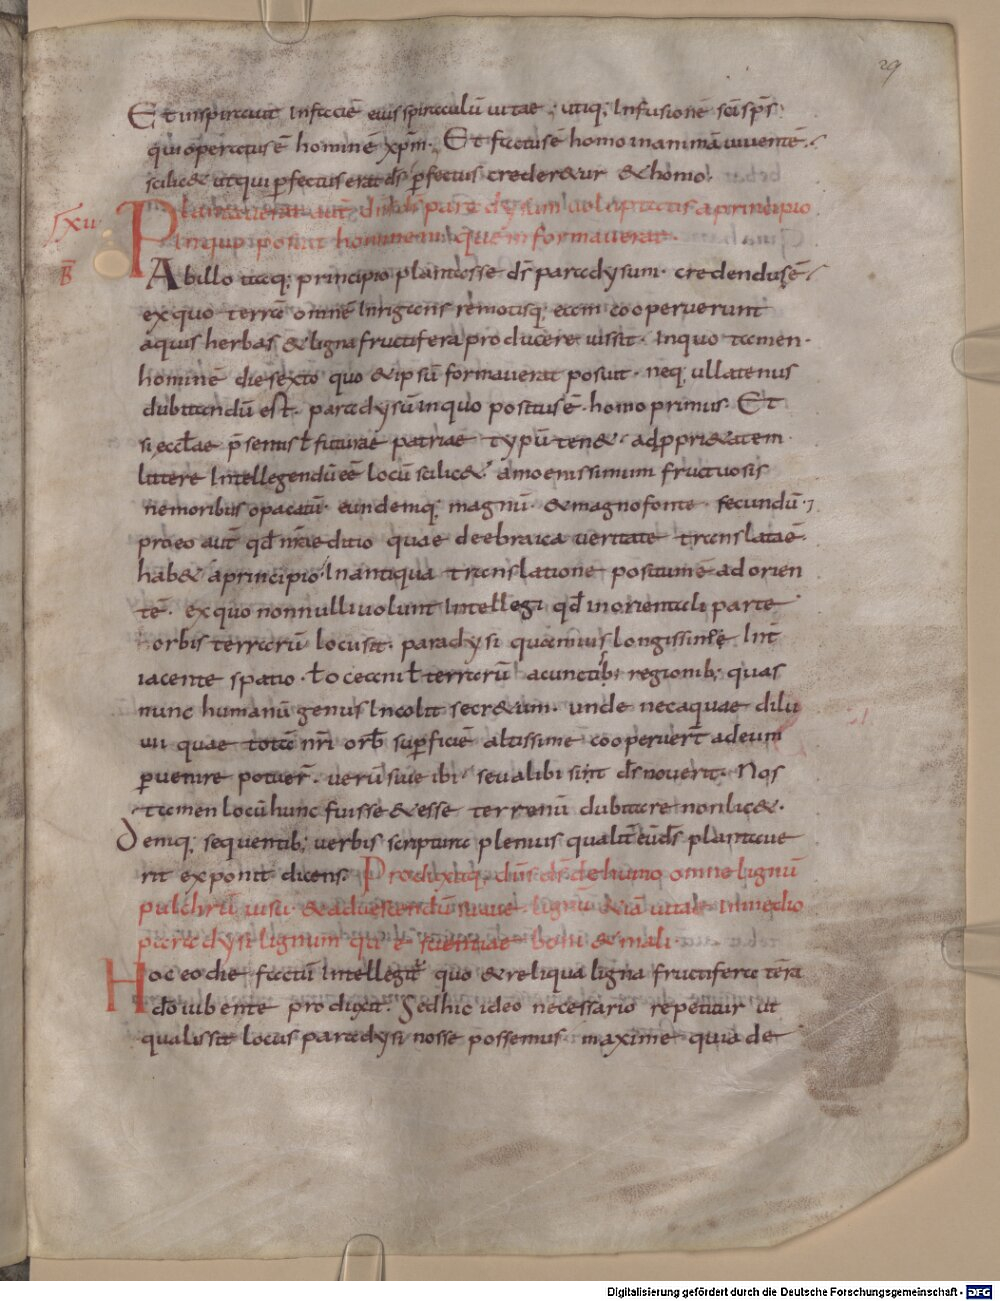 29
Et inspirauit In faciē eius spiraculū uitae ; utiq; Infusionē sc̄i sp̄s
qui operatus ē hominē xp̄m. Et factus ē homo in animā uiuentē.
scilic& ut qui ꝑfectus erat ds̄ ꝑfectus creder&ur & homo.
lxu Plantauerat aut̄ dn̄s ds̄ paradysum uoluptatis a principio
In quo posuit hominem quem formauerat.
B̄ Ab illo itaq; principio plantasse ds̄ paradysum. credendus ē
ex quo terrā omnē Inrigans remotisq; eam cooperuerunt
aquis herbas & ligna fructifera producere iussit. In quo tamen.
hominē die sexto quo & ipsū formauerat posuit. neq; ullatenus
dubitandū est. paradysū in quo positus ē. homo primus. Et
si eccl̄ae p̄sentis ł futurae patriae typū ten&. ad ꝓpri&atem
littere Intellegendū eē locū scilic& amoenissimum fructuosis
nemoribus opacatū. eundemq; magnū. & magno fonte. fecundū.
pro eo aut̄ qd̄ nr̄a editio quae de ebraica ueritate translata ē.
hab& a principio In antiqua translatione positum ē ad orien
tē. ex quo nonnulli uolunt Intellegi qd̄ in orientali parte
orbis terrarū locus sit. paradysi quamuis longissime Int̄
iacente spatio. ł oceani ł terrarū a cunctis regionib; quas
nunc humanū genus Incolit secr&um. unde nec aquae dilu
uii quae totā nr̄i orb̄ suꝑficiē altissime cooperuer̄t ad eum
ꝑuenire potuer̄. uerū siue ibi seu alibi sint ds̄ nouerit. Nos
tamen locū hunc fuisse & esse terrenū dubitare non lic&.
Deniq; sequentib; uerbis scriptura plenius qualit̄ eūds̄ plantaue
rit exponit dicens. Produxitq; dn̄s ds̄ de humo omne lignū
pulchrū uisu & ad uescendū suaue. lignū &iā uitae In medio
paradysi lignum qꝫ ē scientiae boni & mali.
Hoc eo die factū Intellegit̄ quo & reliqua ligna fructifera terra
do iubente produxit. Sed hic ideo necessario repetitur ut
qualis sit locus paradysi nosse possemus maxime quia de
Digitalisierung gefördert durch die Deutsche Forschungsgemeinschaft - DFG